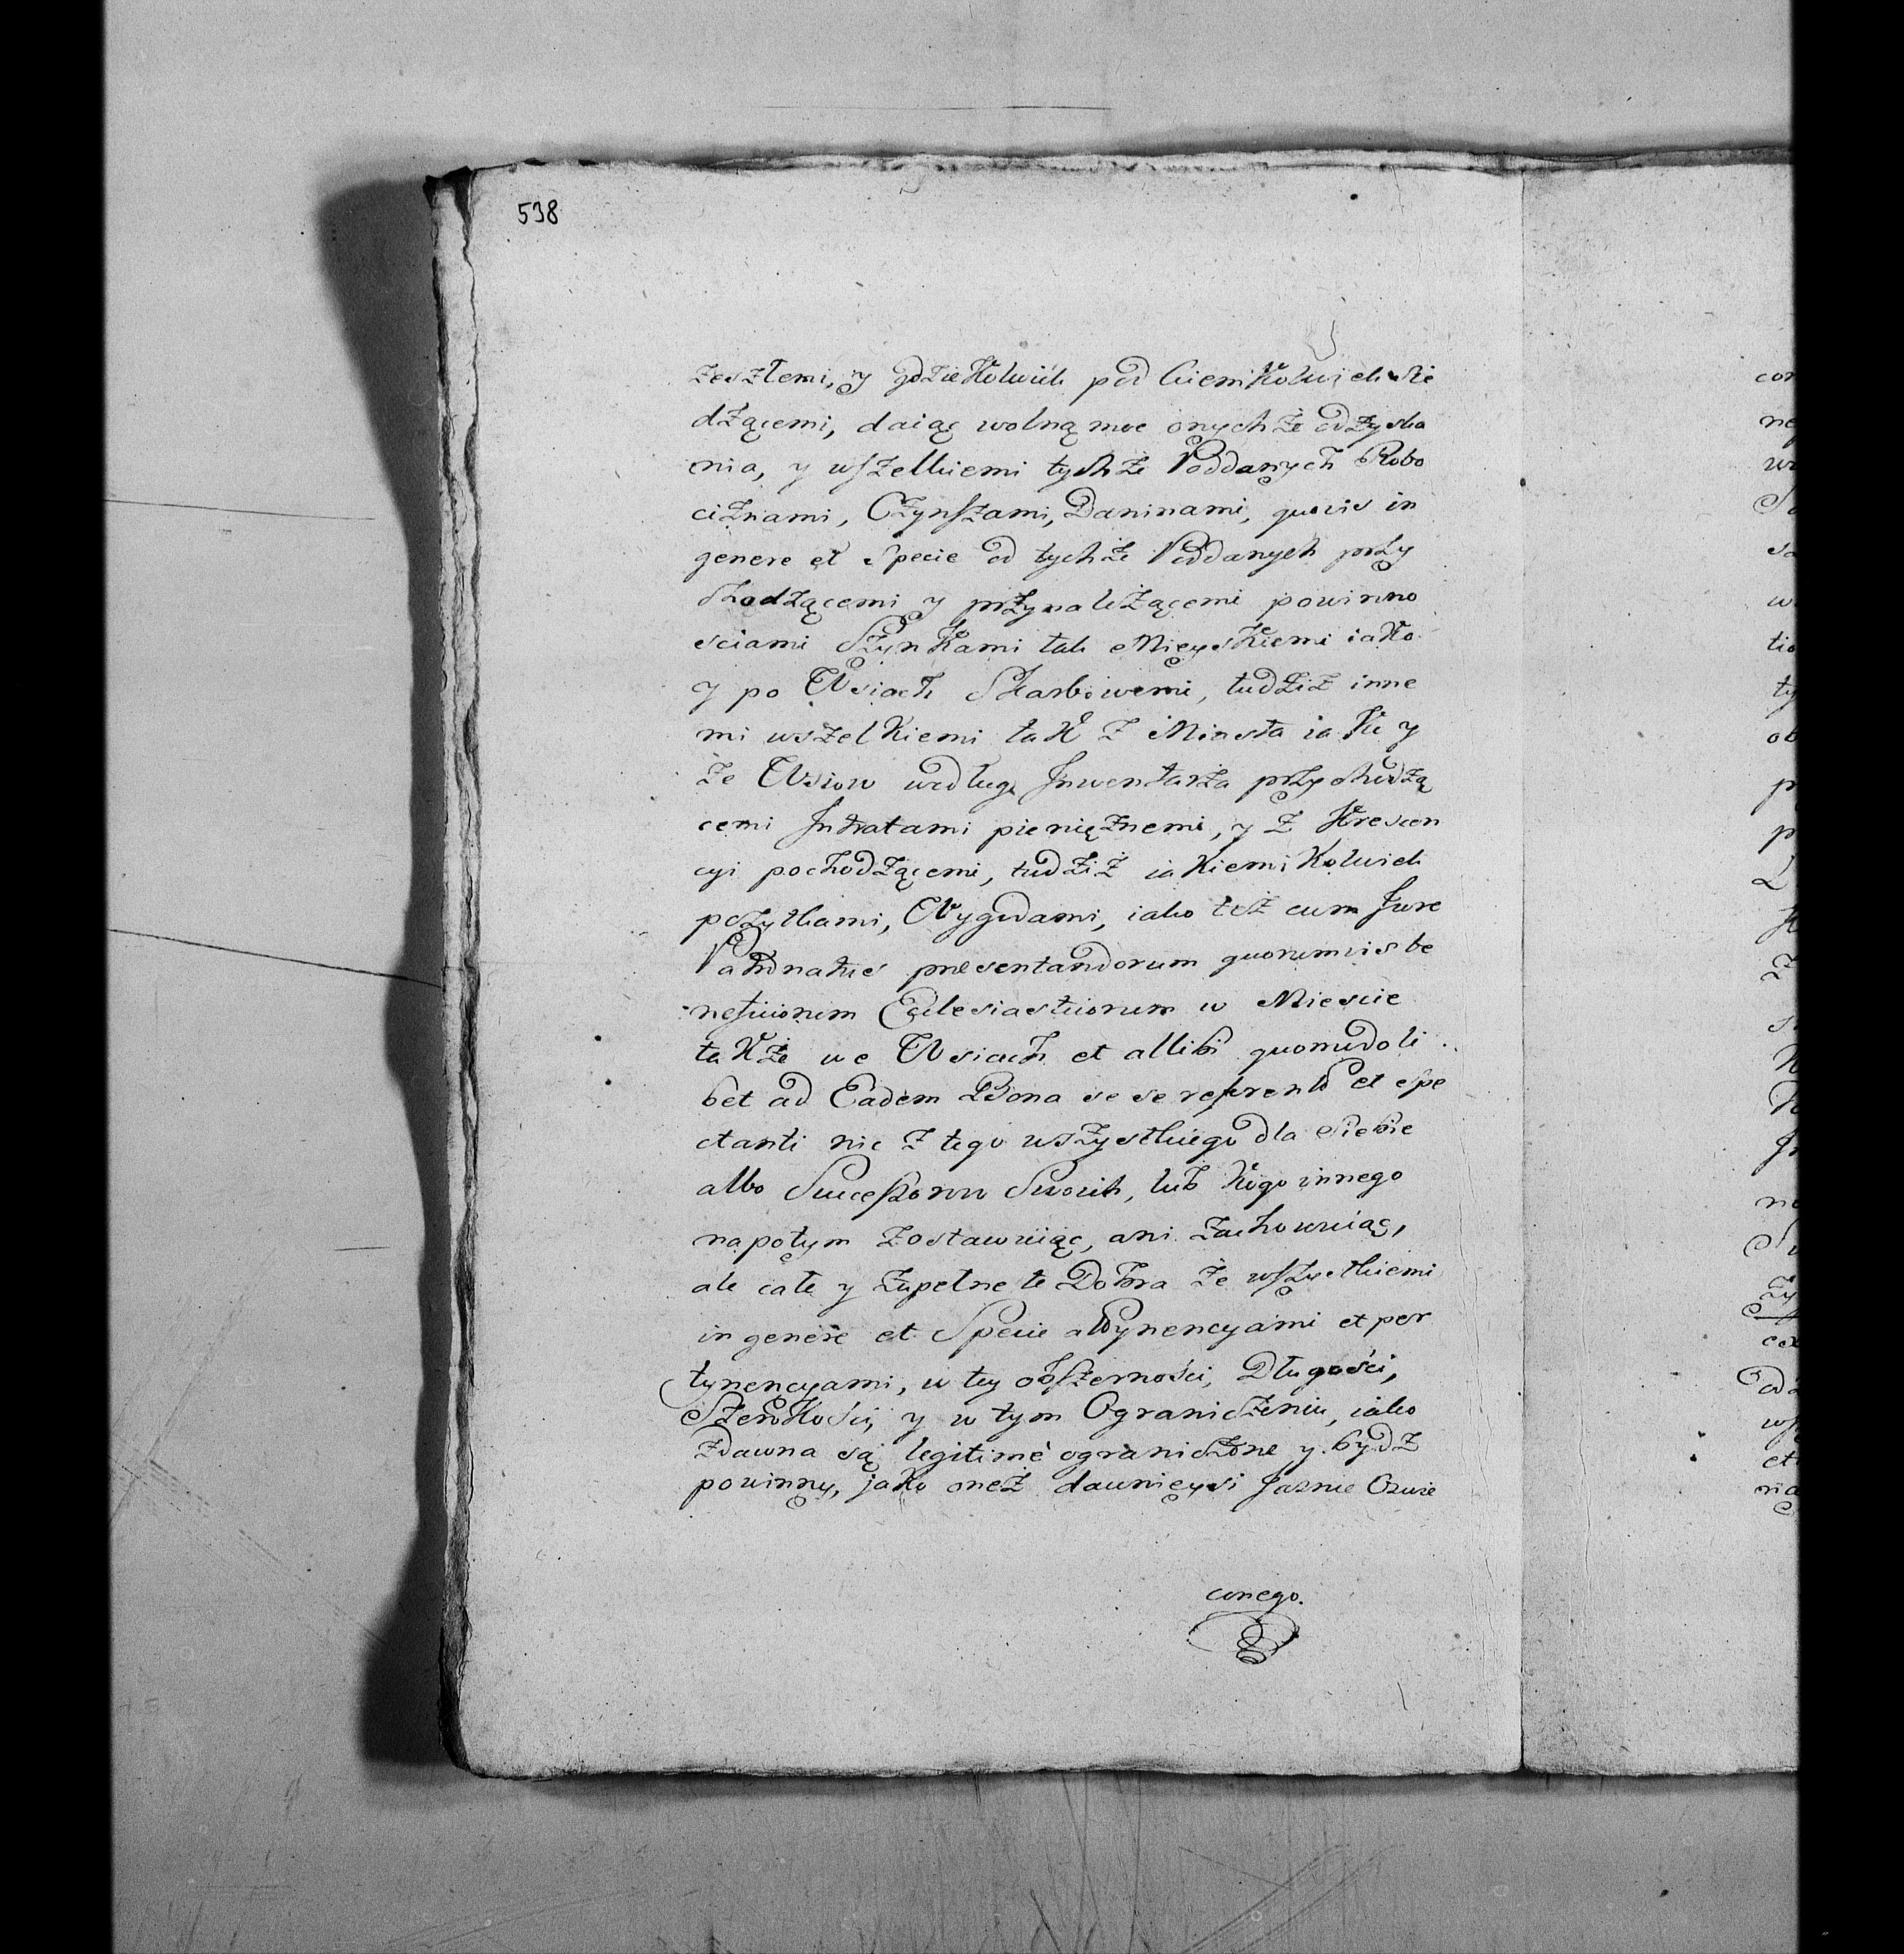 538
zeszłemi, y gdzie Kolwiek pod kiem Kolwiek sie
dzącemi, daiąc wolną moc onychże odzyska
nia, y wszelkiemi tychże Poddanych Robo
ciznami, Czynszami, Daninami, quovis in
genere et Specie od tychże Poddanych przy
chodzącemi y przynależącemi powinno
sciami Szynkami tak Mieyskiemi iako
y po Wsiach Skarbowemi, tudziż inne
mi wszelkiemi tak z Miasta iako y
ze Wsiow według Inwentarza przychodzą
cemi Intratami pieniężnemi, y z Krescen
cyi pochodzącemi, tudziż iakiemi Kolwiek
pożytkami, Wygodami, iako też cum Jure
Patronatus presentandorum quorumvis be
neficiorum Eclesiasticorum w Miescie
także we Wsiach et allibi quomodoli
bet ad Eadem Bona se se referenti et spe
ctanti nic z tego wszystkiego dla siebie
albo Successorow Swoich, lub kogo innego
napotym zostawuiąc, ani zachowuiąc,
ale całe y zupełne te Dobra ze wszystkiemi
in genere et Specie attynencyami et per
tynencyami, w tey obszerności, Długości,
Szerokości, y w tym Ograniczeniu, iako
zdawna są legitimé ograniczone y bydz
powinny, jako oneż dawnieysi Jasnie Oswie
conego.
con
ne